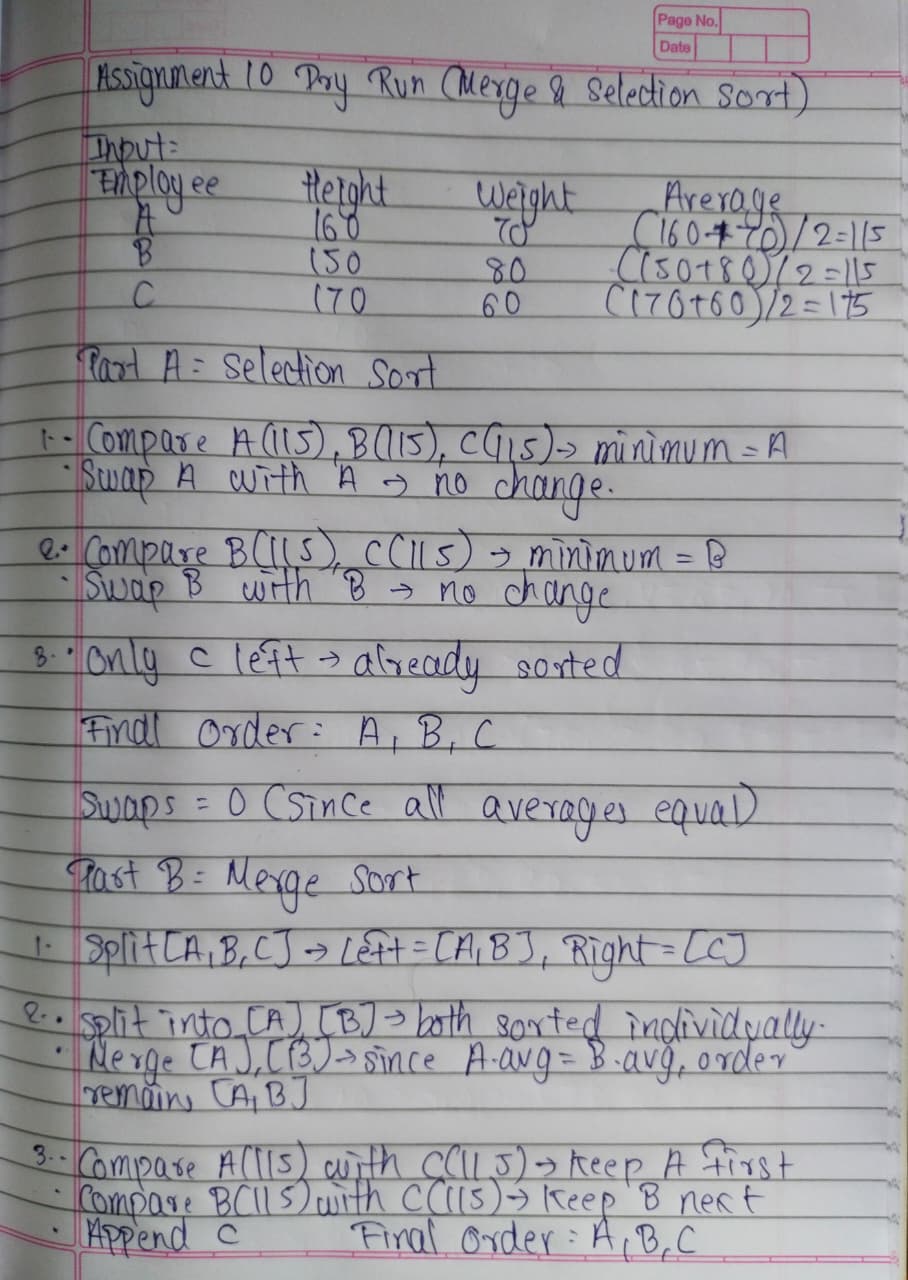 Page No.
Date
Assignment 10 Dry Run (Merge & Selection Sort)
Input:
Employee Height Weight Average
A 160 70 (160+70)/2=115
B 150 80 (150+80)/2=115
C 170 60 (170+60)/2=115
Part A = Selection Sort
1. • Compare A(115), B(115), C(115) → minimum = A
• Swap A with A → no change.
2. • Compare B(115), C(115) → minimum = B
• Swap B with B → no change
3. • Only C left → already sorted
Final Order: A, B, C
Swaps = 0 (Since all averages equal)
Part B = Merge Sort
1. Split [A,B,C] → Left = [A,B], Right = [C]
2. • Split into [A], [B] → both sorted individually.
• Merge [A], [B] → since A.avg = B.avg, order
remains [A,B]
3. • Compare A(115) with C(115) → Keep A first
• Compare B(115) with C(115) → Keep B next
• Append C Final Order: A, B, C